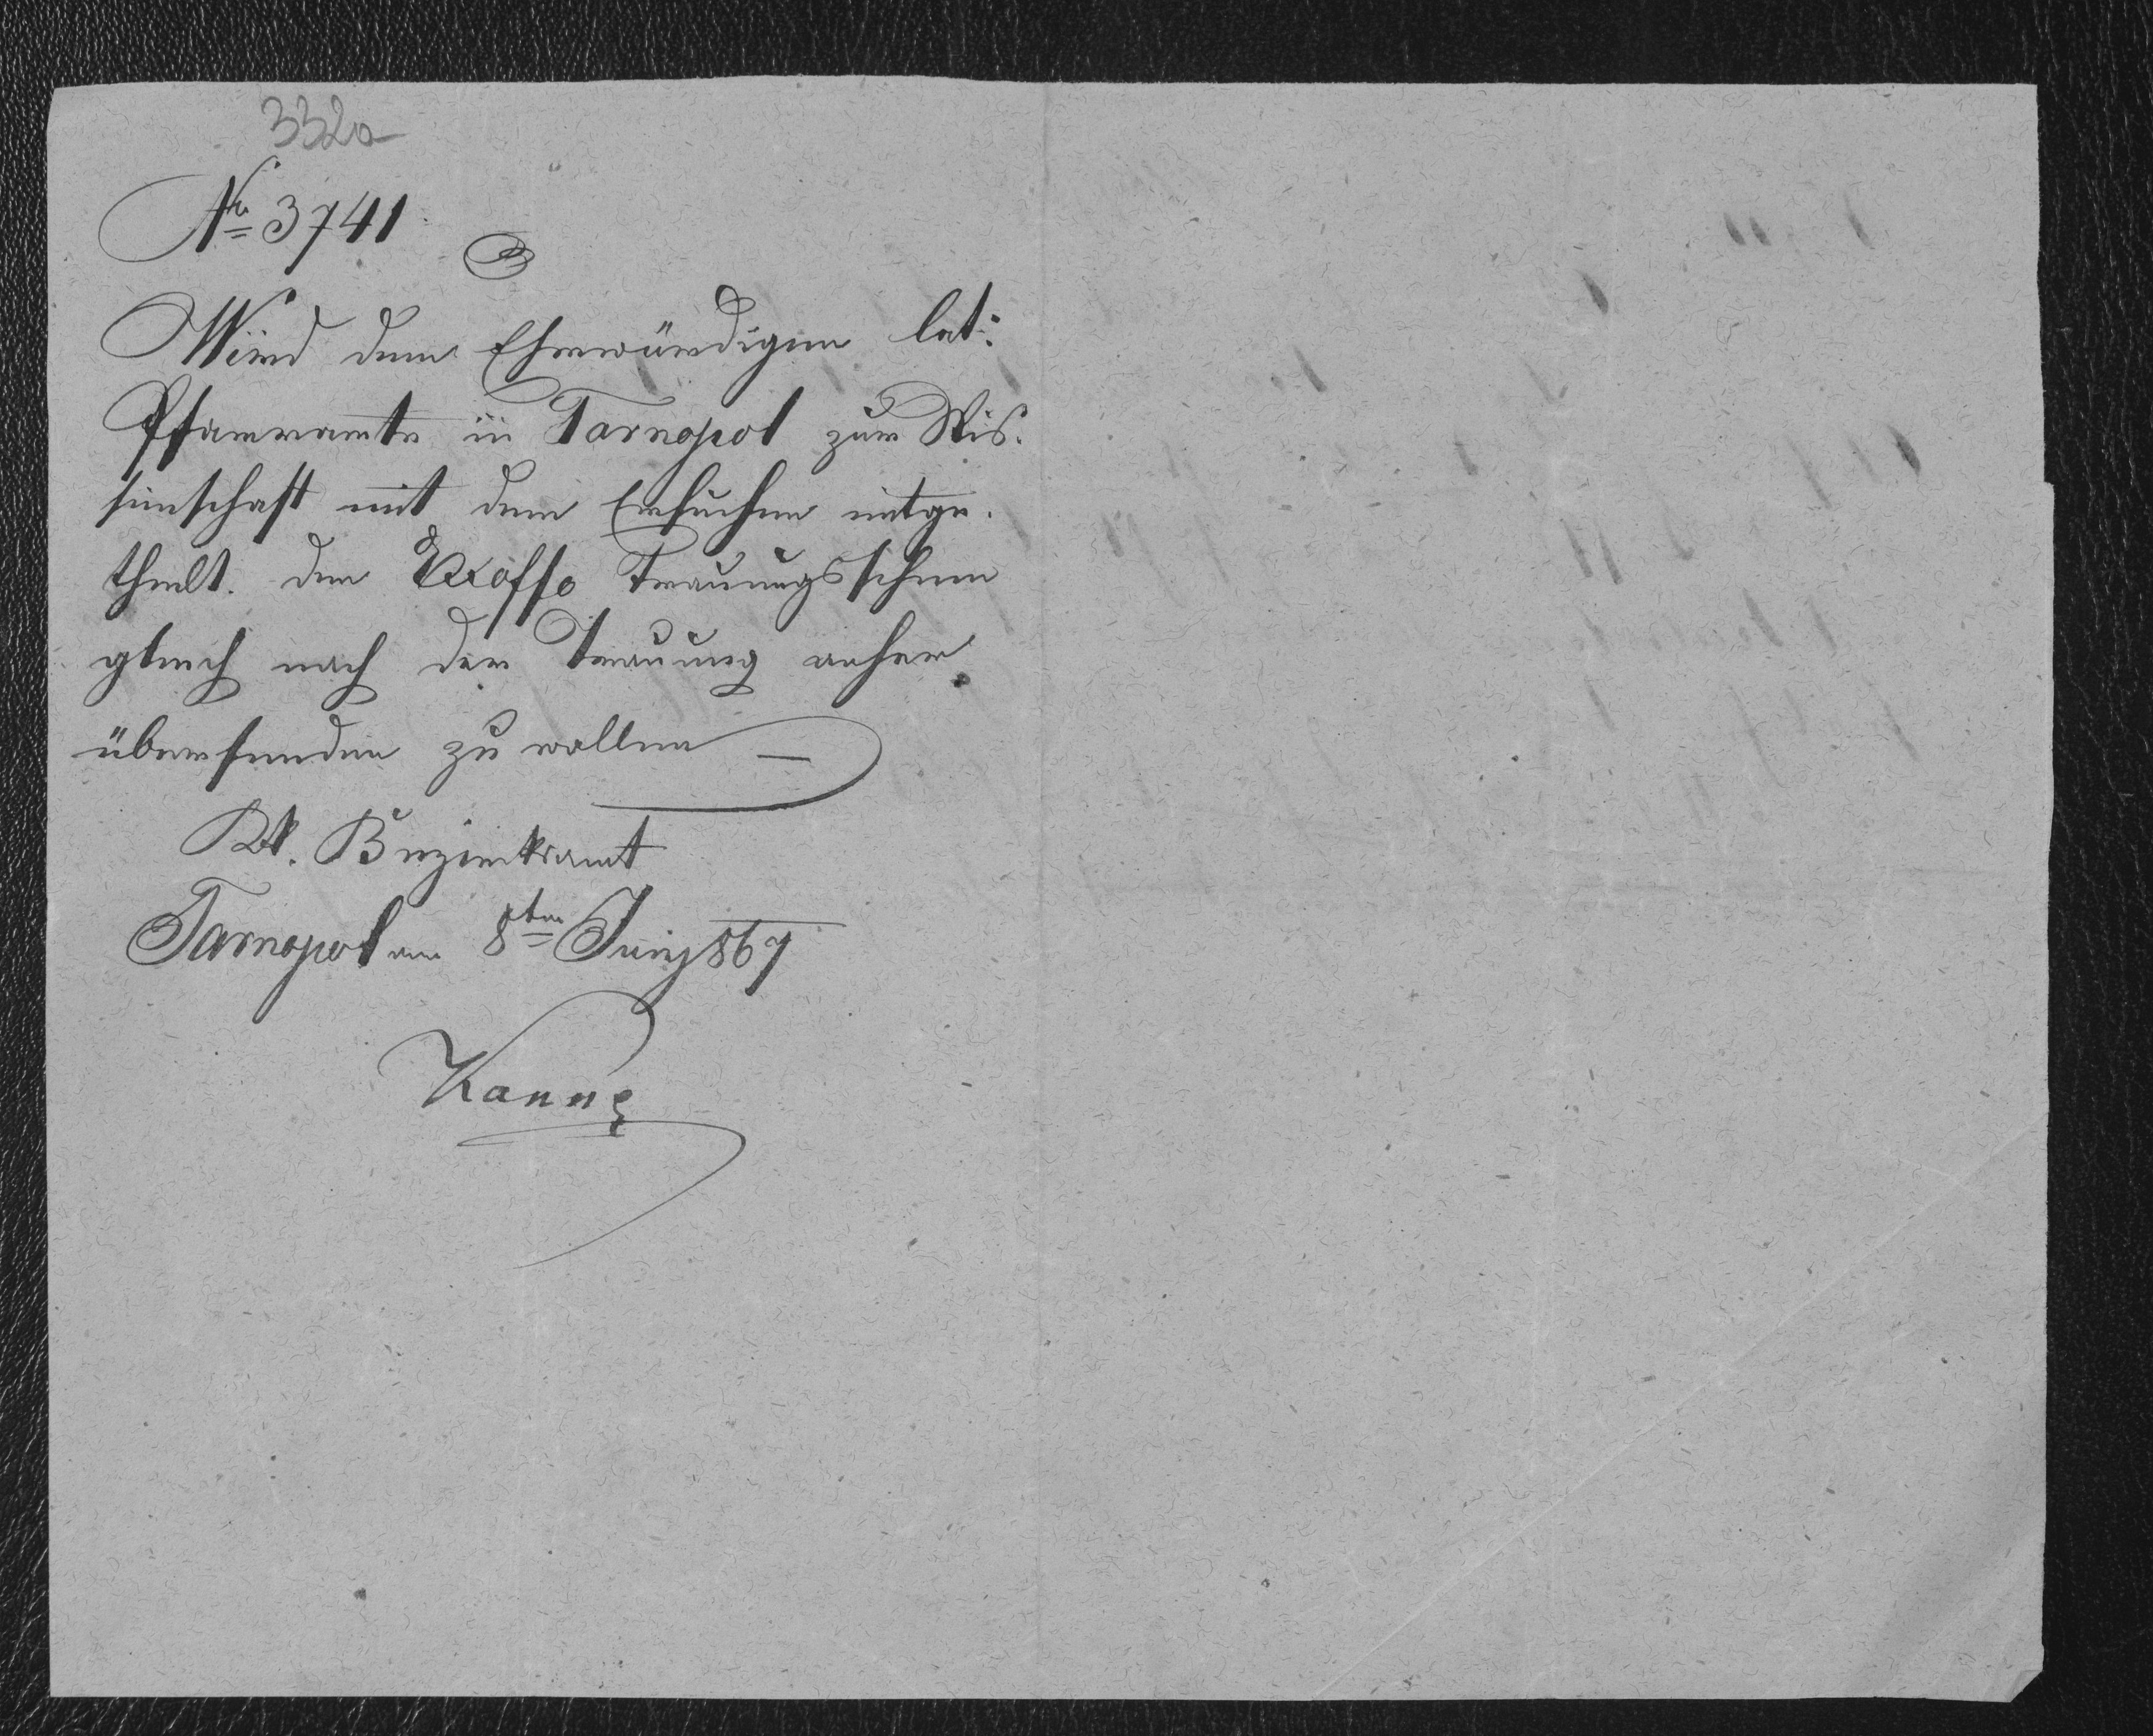 332a
Nr 3741
B
Wird dem Ehrwürdigen lat:
Pfarramte in Tarnopol zur Wis-
senschaft mit dem Ersuchen mitge-
theilt. den ex offo Trauungsschein
gleich nach der Trauung anher
übersenden zu wollen –
KK. Bezirksamt
Tarnopol am 8ten Juny 867
Kanne